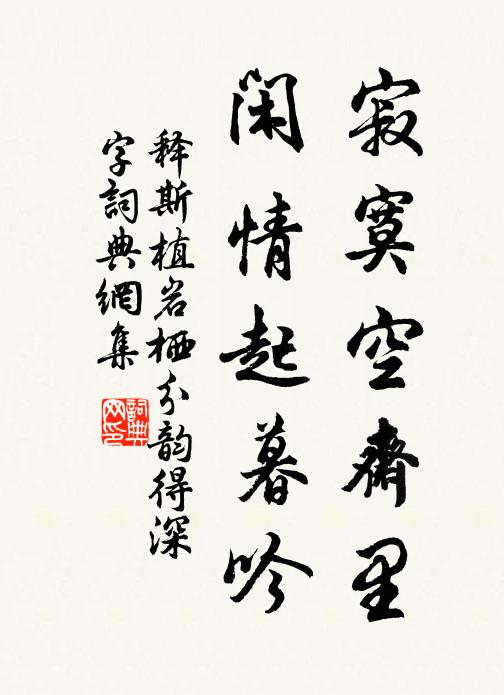 寂寞空齋里
闲情起暮吟
释斯植岩栖分韵得深
字詞典網集
詞典网印